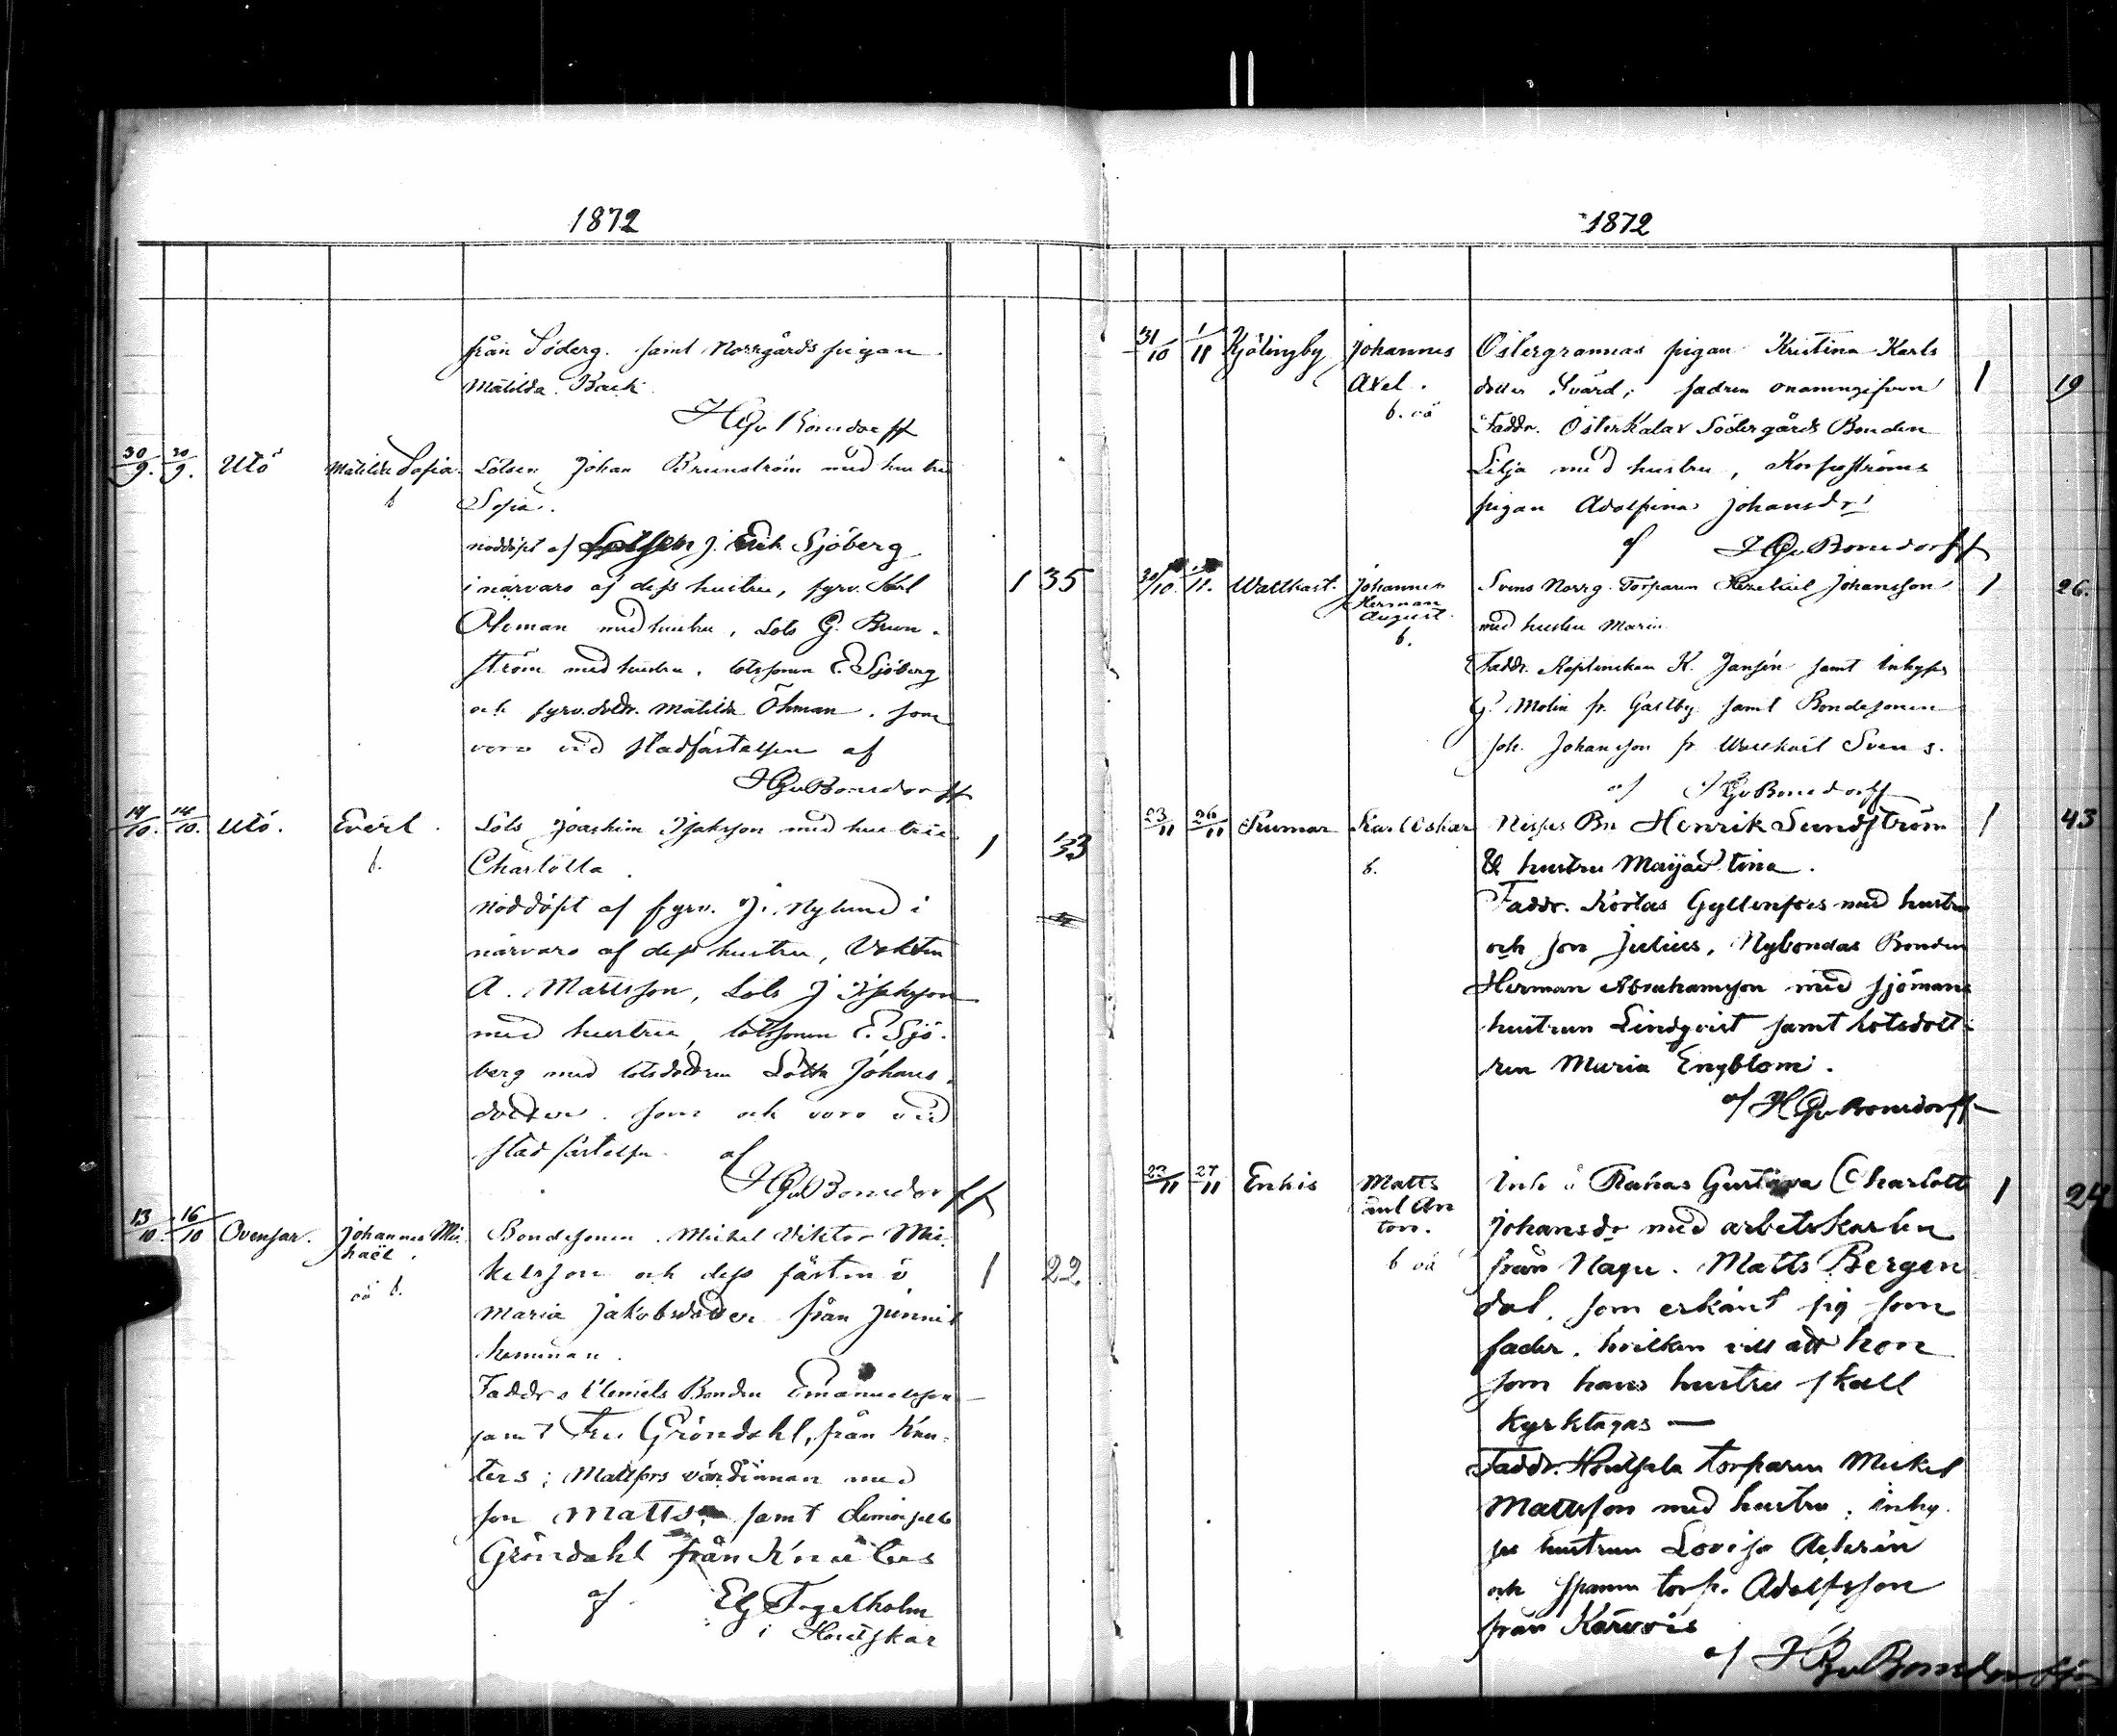 1872
från Söderg. samt Norrgårds pigan
Matilda Back.
HGvBonsdorff
30/9. 30/9. Utö Matilda Sofia Lotsen Johan Brunström med hustru
b Sofia.
nöddöpt af J. Erik Sjöberg
i närvaro af dess hustru, fyrv. Karl 1 35
Öhman med hustru, Lots G. Brun-
ström med hustru, lotssonen E. Sjöberg
och fyrv.dottr. Matilda Öhman. som
voro vid stadfästelsen af
HGvBonsdorff
14/10. 14/10. Utö. Evert. Lots Joachim Isaksson med hustru
b. Charlotta. 1 33
nöddöpt af fyrv. J. Nylund i
närvaro af dess hustru,
A. Mattsson, Lots J Isaksson
med hustru, lotssonen E. Sjö-
berg med lotsdottren Lotta Johans-
dotter. som och voro vid
stadfästelsen af
HGvBonsdorff
13/10 16/10 Ovensar. Johannes Mi- Bondesonen Mickel Viktor Mi-
hael. kelsson och dess fästmö 1 22
oä b. Maria Jakobsdotter från Jinnis
hemman.
Faddr. Bonden Emanuelsson
samt Fru Gröndahl, från Knu-
ters; Mattfors värdinnan med
son Matts, samt
Gröndahl från Knuters
af Fagerholm
i Houtskär
1872
31/10 1/11 Kjölingby Johannes Östergrannas pigan Kristina Karls
Axel. dotter Svärd; fadren onamngifven 1 19
b. oä Faddr. Österkalax Södergårds Bonden
Lilja med hustru, Korsströms
pigan Adolfina Johansdr
af HGvBonsdorff
30/10. 11. Wattkast. Johannes Svens Norrg. Torparen Hezekiel Johansson 1 26.
Herman
August. med hustru Maria
b.
Faddr. K. Jansén samt Inhyses
G. Molin fr. Galtby samt Bondesonen
Joh. Johansson fr Wattkast Svens.
af HGvBonsdorff
23/11 26/11 Rumar Karl Oskar Nisses Bn Henrik Sundström 1 43
b. & hustru Maija Stina.
Faddr. Gyllenfors med hustru
och son Julius, Nybondas Bonden
Herman Abrahamsson med sjömans
hustrun Lindqvist samt lotsdott-
ren Maria Engblom.
af HGvBonsdorff
23/11 27/11 Enkis Matts Inh å Gustava Charlotta 1 24
An Johansdr med arbetskarlen
ton. från Nagu. Matts Bergen
b oä dal, som erkänt sig som
fader. hvilken vill att hon
som hans hustru skall
kyrktagas —
Faddr. torparen Mickel
Mattsson med hustru, inhy-
ses hustrun Lovisa
och torp. Adolfsson
från Kärvois
af HGvBonsdorff